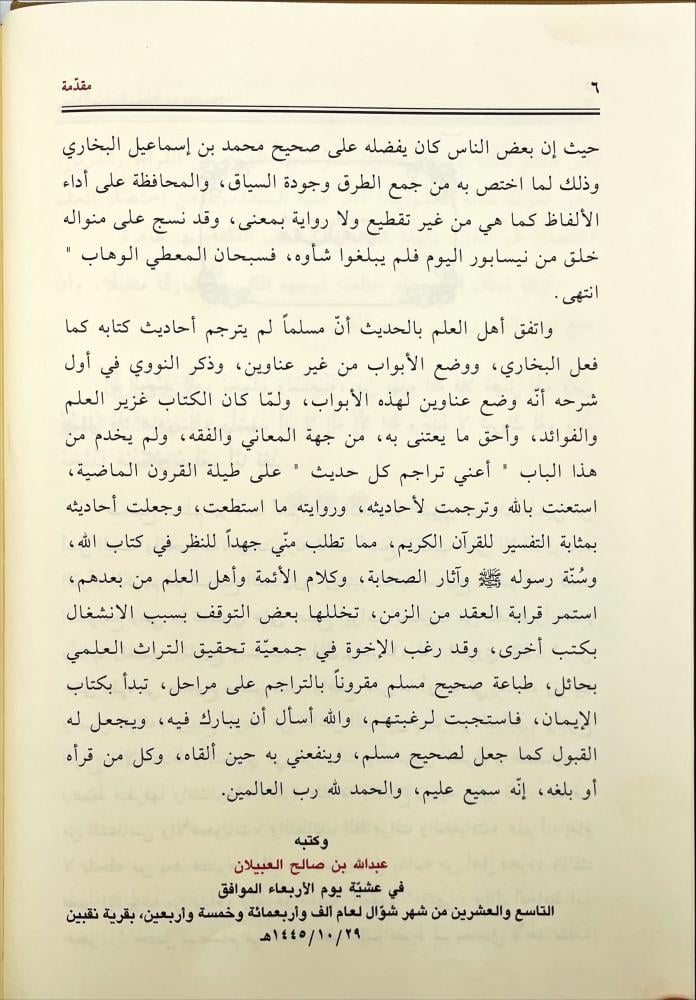 ٦ مقدّمة
حيث إن بعض الناس كان يفضله على صحيح محمد بن إسماعيل البخاري
وذلك لما اختص به من جمع الطرق وجودة السياق، والمحافظة على أداء
الألفاظ كما هي من غير تقطيع ولا رواية بمعنى، وقد نسج على منواله
خلق من نيسابور اليوم فلم يبلغوا شأوه، فسبحان المعطي الوهاب "
انتهى.
واتفق أهل العلم بالحديث أنّ مسلماً لم يترجم أحاديث كتابه كما
فعل البخاري، ووضع الأبواب من غير عناوين، وذكر النووي في أول
شرحه أنّه وضع عناوين لهذه الأبواب، ولمّا كان الكتاب غزير العلم
والفوائد، وأحق ما يعتنى به، من جهة المعاني والفقه، ولم يخدم من
هذا الباب " أعني تراجم كل حديث " على طيلة القرون الماضية،
استعنت بالله وترجمت لأحاديثه، وروايته ما استطعت، وجعلت أحاديثه
بمثابة التفسير للقرآن الكريم، مما تطلب منّي جهداً للنظر في كتاب الله،
وسُنّة رسوله ﷺ وآثار الصحابة، وكلام الأئمة وأهل العلم من بعدهم،
استمر قرابة العقد من الزمن، تخللها بعض التوقف بسبب الانشغال
بكتب أخرى، وقد رغب الإخوة في جمعيّة تحقيق التراث العلمي
بحائل، طباعة صحيح مسلم مقروناً بالتراجم على مراحل، تبدأ بكتاب
الإيمان، فاستجبت لرغبتهم، والله أسأل أن يبارك فيه، ويجعل له
القبول كما جعل لصحيح مسلم، وينفعني به حين ألقاه، وكل من قرأه
أو بلغه، إنّه سميع عليم، والحمد لله رب العالمين.
وكتبه
عبدالله بن صالح العبيلان
في عشيّة يوم الأربعاء الموافق
التاسع والعشرين من شهر شوّال لعام ألف وأربعمائة وخمسة وأربعين، بقرية نقبين
١٤٤٥/١٠/٢٩هـ